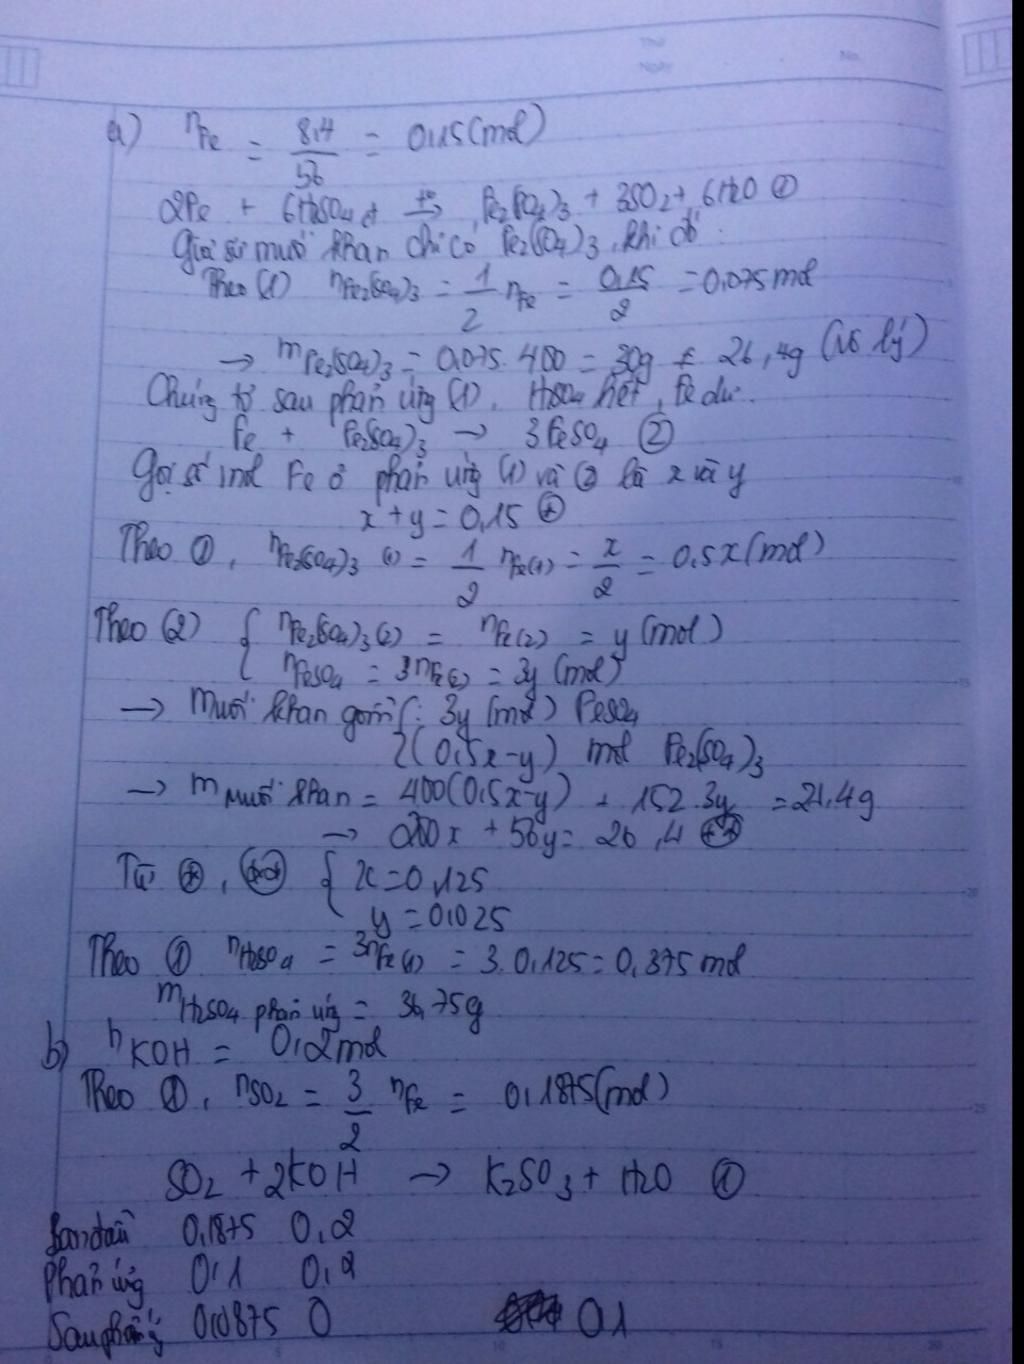 Thứ
Ngày No.
a) nFe = 8,4/56 = 0,15(mol)
2Fe + 6H2SO4 đ t°→ Fe2(SO4)3 + 3SO2 + 6H2O ①
Giả sử muối khan chỉ có Fe2(SO4)3, khi đó:
Theo (1) nFe2(SO4)3 = 1/2 nFe = 0,15/2 = 0,075 mol
→ mFe2(SO4)3 = 0,075.400 = 30g ≠ 26,4g (vô lý)
Chứng tỏ sau phản ứng (1), H2SO4 hết, Fe dư.
Fe + Fe2(SO4)3 → 3FeSO4 ②
Gọi số mol Fe ở phản ứng (1) và (2) là x và y
x + y = 0,15 (*)
Theo ①, nFe2(SO4)3 (1) = 1/2 nFe(1) = x/2 = 0,5x(mol)
Theo (2) { nFe2(SO4)3(2) = nFe(2) = y(mol)
nFeSO4 = 3nFe(2) = 3y (mol)
→ Muối khan gồm {: 3y (mol) FeSO4
(0,5x-y) mol Fe2(SO4)3
→ mmuối khan = 400(0,5x-y) + 152.3y = 21,4g
→ 200x + 56y = 26,4 (**)
Từ (*), (**) { x = 0,125
y = 0,025
Theo ① nH2SO4 = 3nFe(1) = 3.0,125 = 0,375 mol
mH2SO4 phản ứng = 36,75g
b) nKOH = 0,2mol
Theo ①, nSO2 = 3/2 nFe = 0,1875(mol)
SO2 + 2KOH → K2SO3 + H2O ①
Ban đầu 0,1875 0,2
Phản ứng 0,1 0,2
Sau phản ứng 0,0875 0 0,1